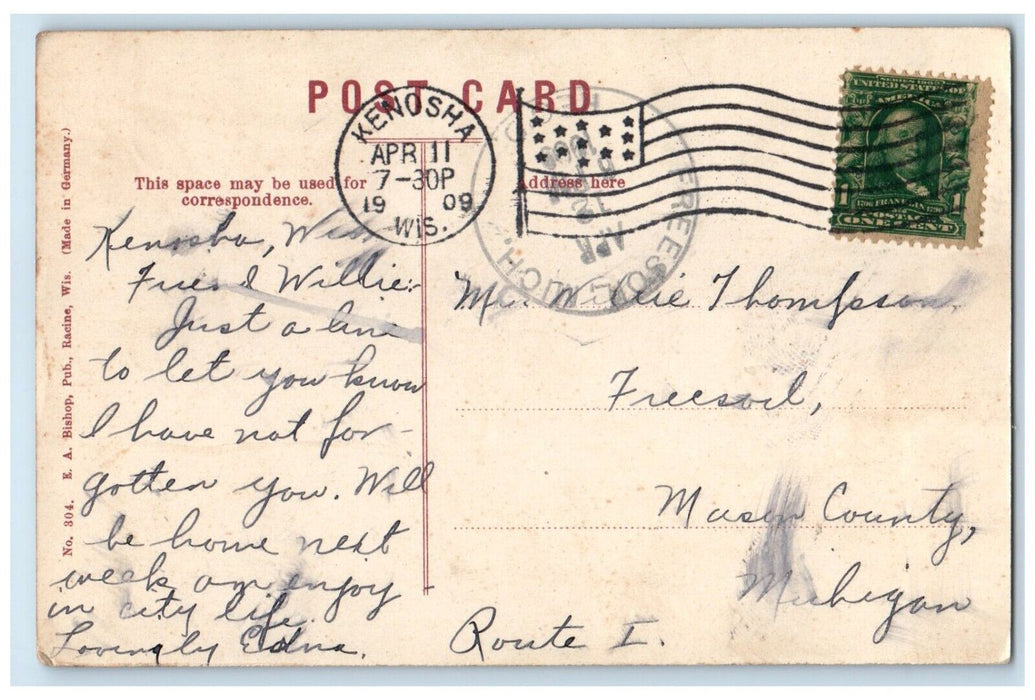 POST CARD
KENOSHA
APR 11
7-30P
1909
WIS.
FREESOIL, MICH.
APR
12
SERIES 1902
UNITED STATES OF
AMERICA
1 FRANKLIN 1
ONE CENT
This space may be used for
correspondence.
Address here
No. 304. E. A. Bishop, Pub., Racine, Wis. (Made in Germany.)
Kenosha, Wis.
Friend Willie:
Just a line
to let you know
I have not for-
gotten you. Will
be home next
week am enjoy
in city life.
Lovingly Edna.
Mr. Willie Thompson.
Freesoil,
Mason County,
Michigan
Route I.